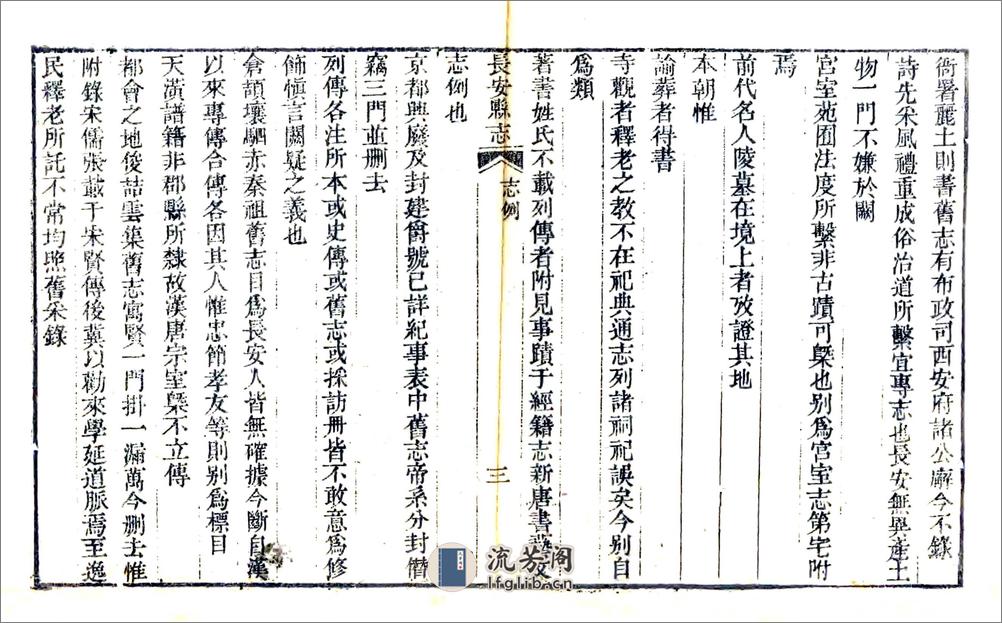 衙署麗土則書舊志有布政司西安府諸公廨今不錄
詩先采風禮重成俗治道所繫宜專志也長安無異產土
物一門不嫌於闕
宮室苑囿法度所繫非古蹟可槩也别爲宮室志第宅附
焉
前代名人陵墓在境上者攷證其地
本朝惟
諭葬者得書
寺觀者釋老之教不在祀典通志列諸祠祀誤矣今别自
爲類
著書姓氏不載列傳者附見事蹟于經籍志新唐書藝文
長安縣志
志例
三
志例也
京都興廢及封建爵號已詳紀事表中舊志帝系分封僭
竊三門並删去
列傳各注所本或史傳或舊志或採訪冊皆不敢意爲修
飾愼言闕疑之義也
倉頡壤駟亦秦祖舊志目爲長安人皆無確據今斷自漢
以來專傳合傳各因其人惟忠節孝友等則别爲標目
天潢譜籍非郡縣所隸故漢唐宗室槩不立傳
都會之地俊喆雲集舊志寓賢一門掛一漏萬今删去惟
附錄宋儒張載于宋賢傳後冀以勸來學延道脈焉至逸
民釋老所託不常均照舊采錄
流芳阁
lfglib.cn